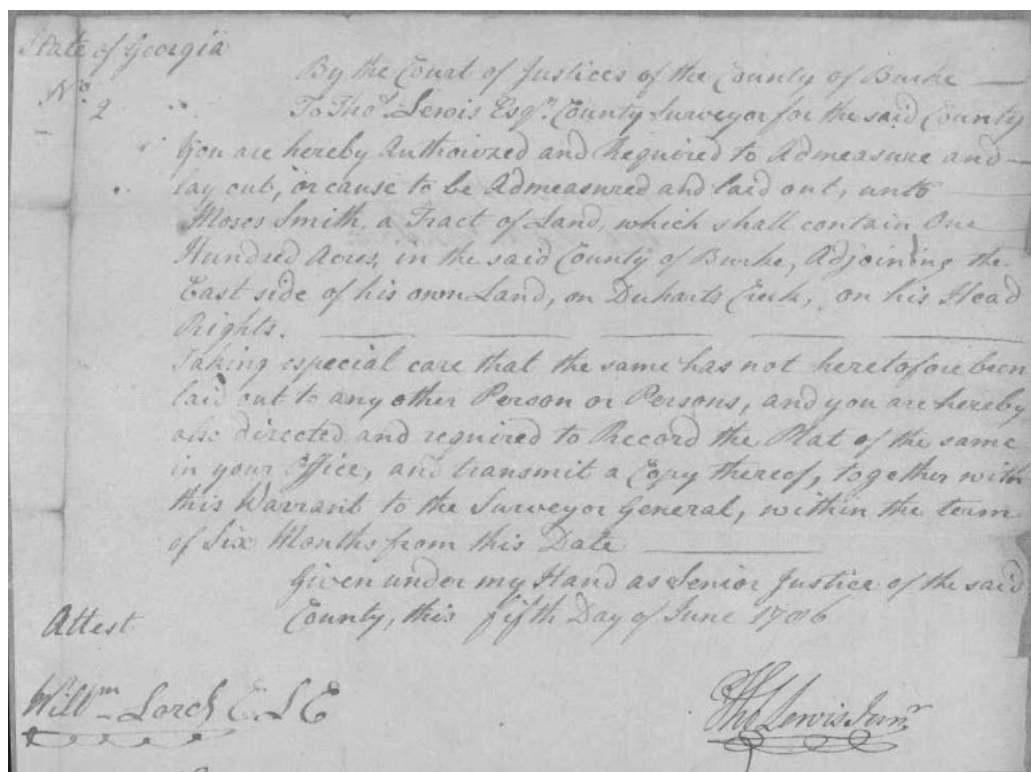 State of Georgia
By the Court of Justices of the County of Burke
No. 2 To Thos. Lewis Esqr. County Surveyor for the said County
You are hereby Authorized and Required to Admeasure and
lay out, or cause to be Admeasured and laid out, unto
Moses Smith, a Tract of Land, which shall contain One
Hundred Acres, in the said County of Burke, Adjoining the
East side of his own Land, on Duharts Creek, on his Head
Rights.
Taking especial care that the same has not heretofore been
laid out to any other Person or Persons, and you are hereby
also directed and required to Record the Plat of the same
in your Office, and transmit a Copy thereof, together with
this Warrant to the Surveyor General, within the term
of Six Months from this Date
Given under my Hand as Senior Justice of the said
County, this fifth Day of June 1786
Attest
Willm
Thos Lewis Junr